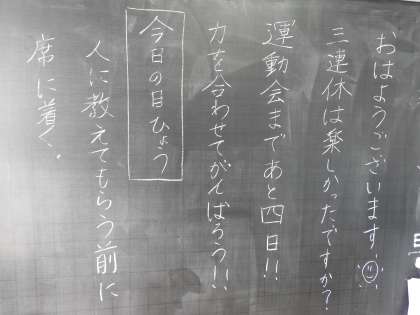 おはようございます!
三連休は楽しかったですか?
運動会まであと四日!!
力を合わせてがんばろう!!
今日の目ひょう
人に教えてもらう前に
席に着く。